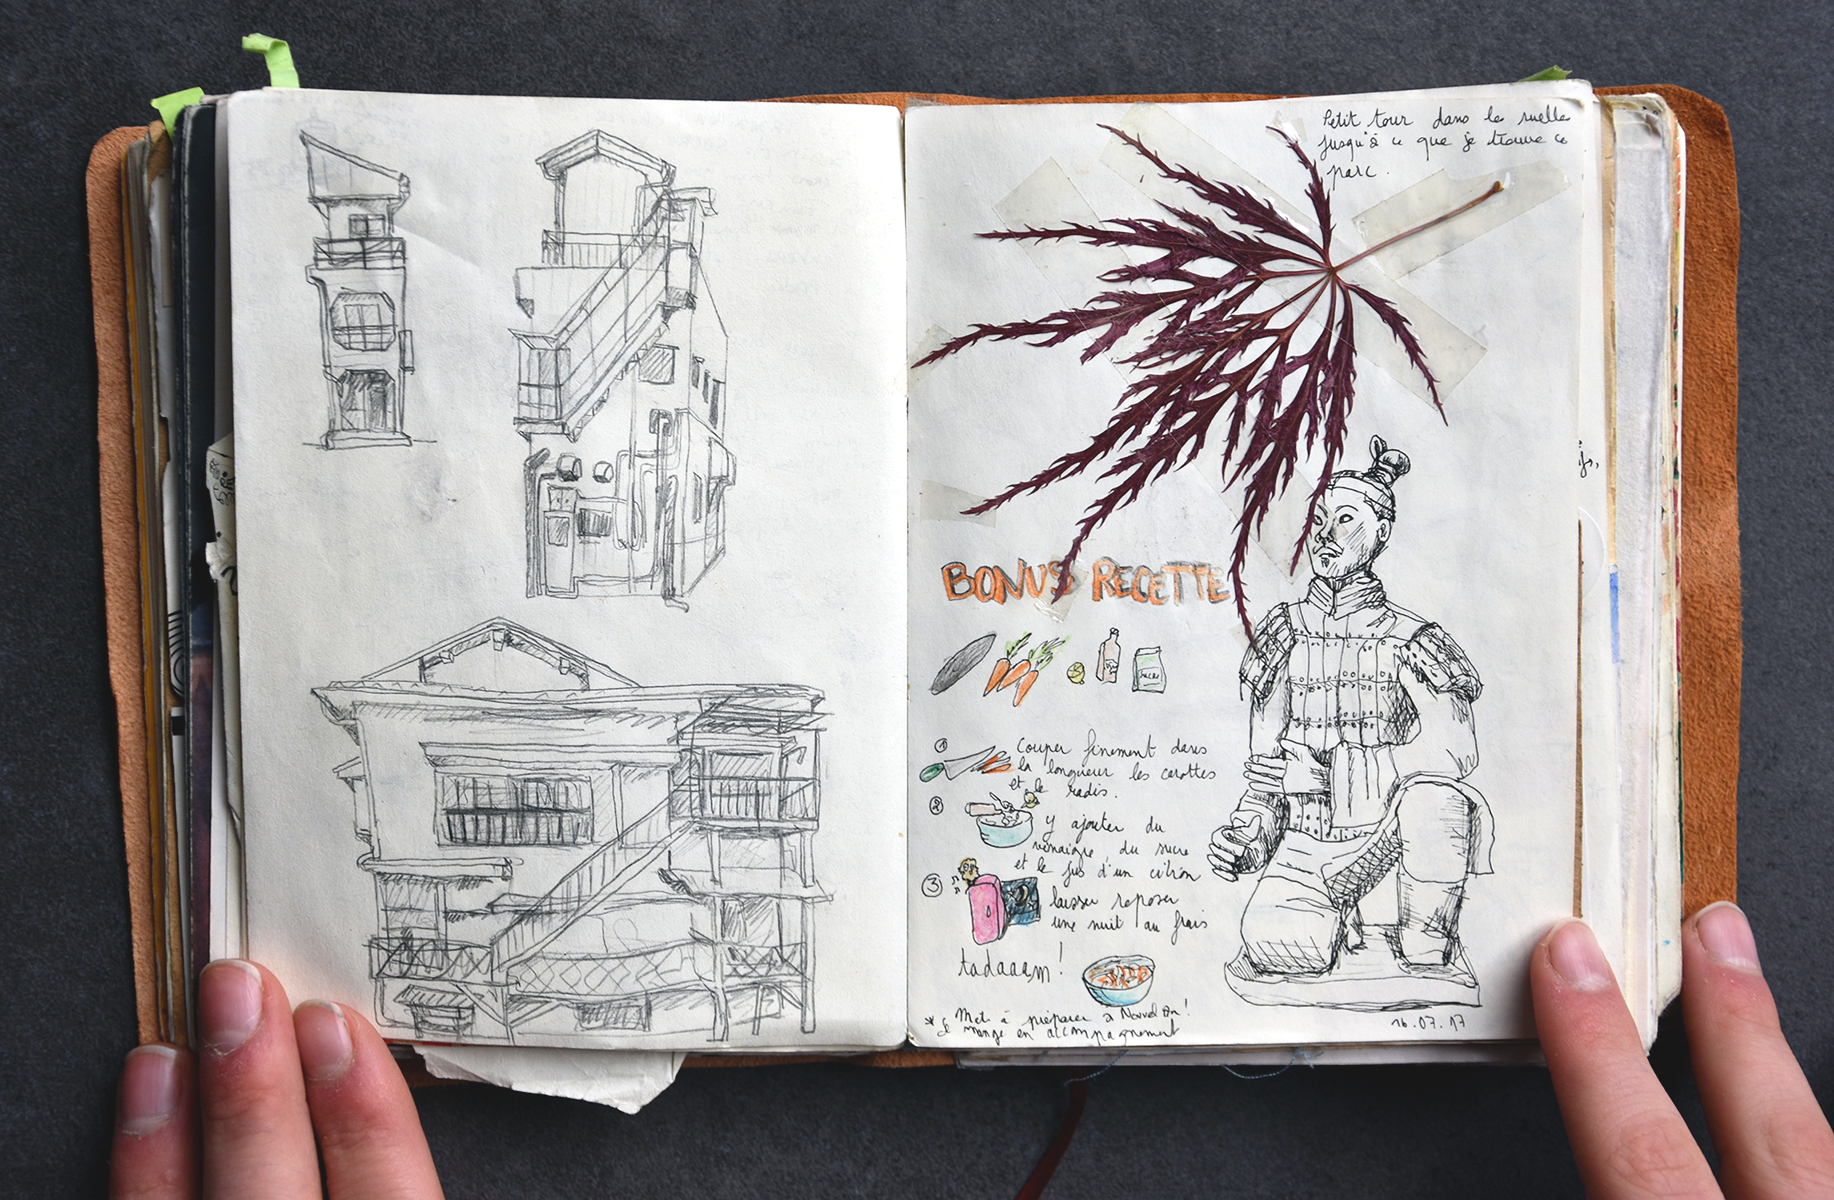 Petit tour dans la ruelle
jusqu'à ce que je trouve ce
parc.
BONUS RECETTE
SUCRE
1
Couper finement dans
la longueur les carottes
et le radis.
2
y ajouter du
vinaigre du sucre
et le jus d'un citron
3
laisser reposer
une nuit au frais
tadaaam!
* Met à préparer à Nouvel An!
se mange en accompagnement
16.07.17